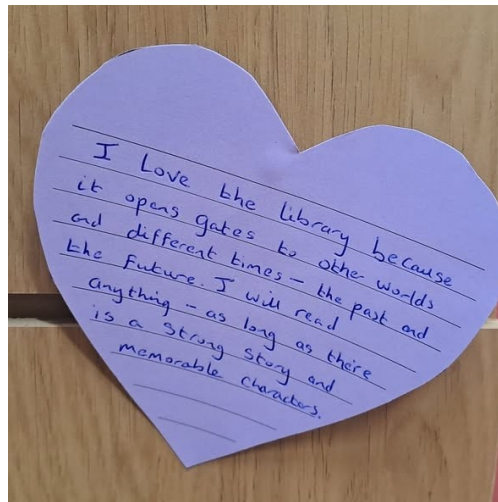 I Love the library because
it opens gates to other worlds
and different times – the past and
the future. I will read
anything – as long as there
is a strong story and
memorable characters.